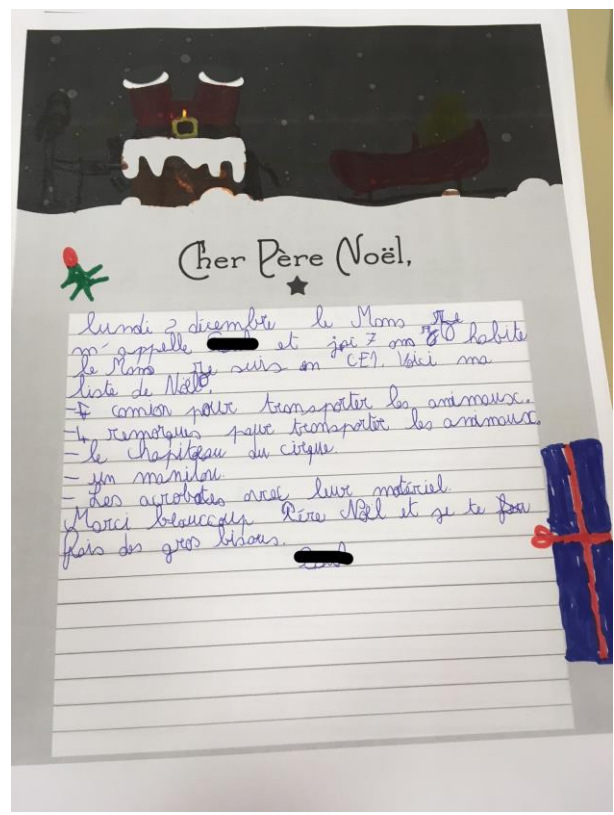 Cher Père Noël,
lundi 2 décembre le Mans Je
m'appelle et jai 7 ans J habite
le Mans Je suis en CE1. Voici ma
liste de Noël.
- camion pour transporter les animause.
- 4 remorques pour transporter les animause.
- le chapiteau du cirque.
- un manitou.
- Les acrobates avec leur matériel.
Marci beauccoup Père Nöel et je te
fais des gros bisous.